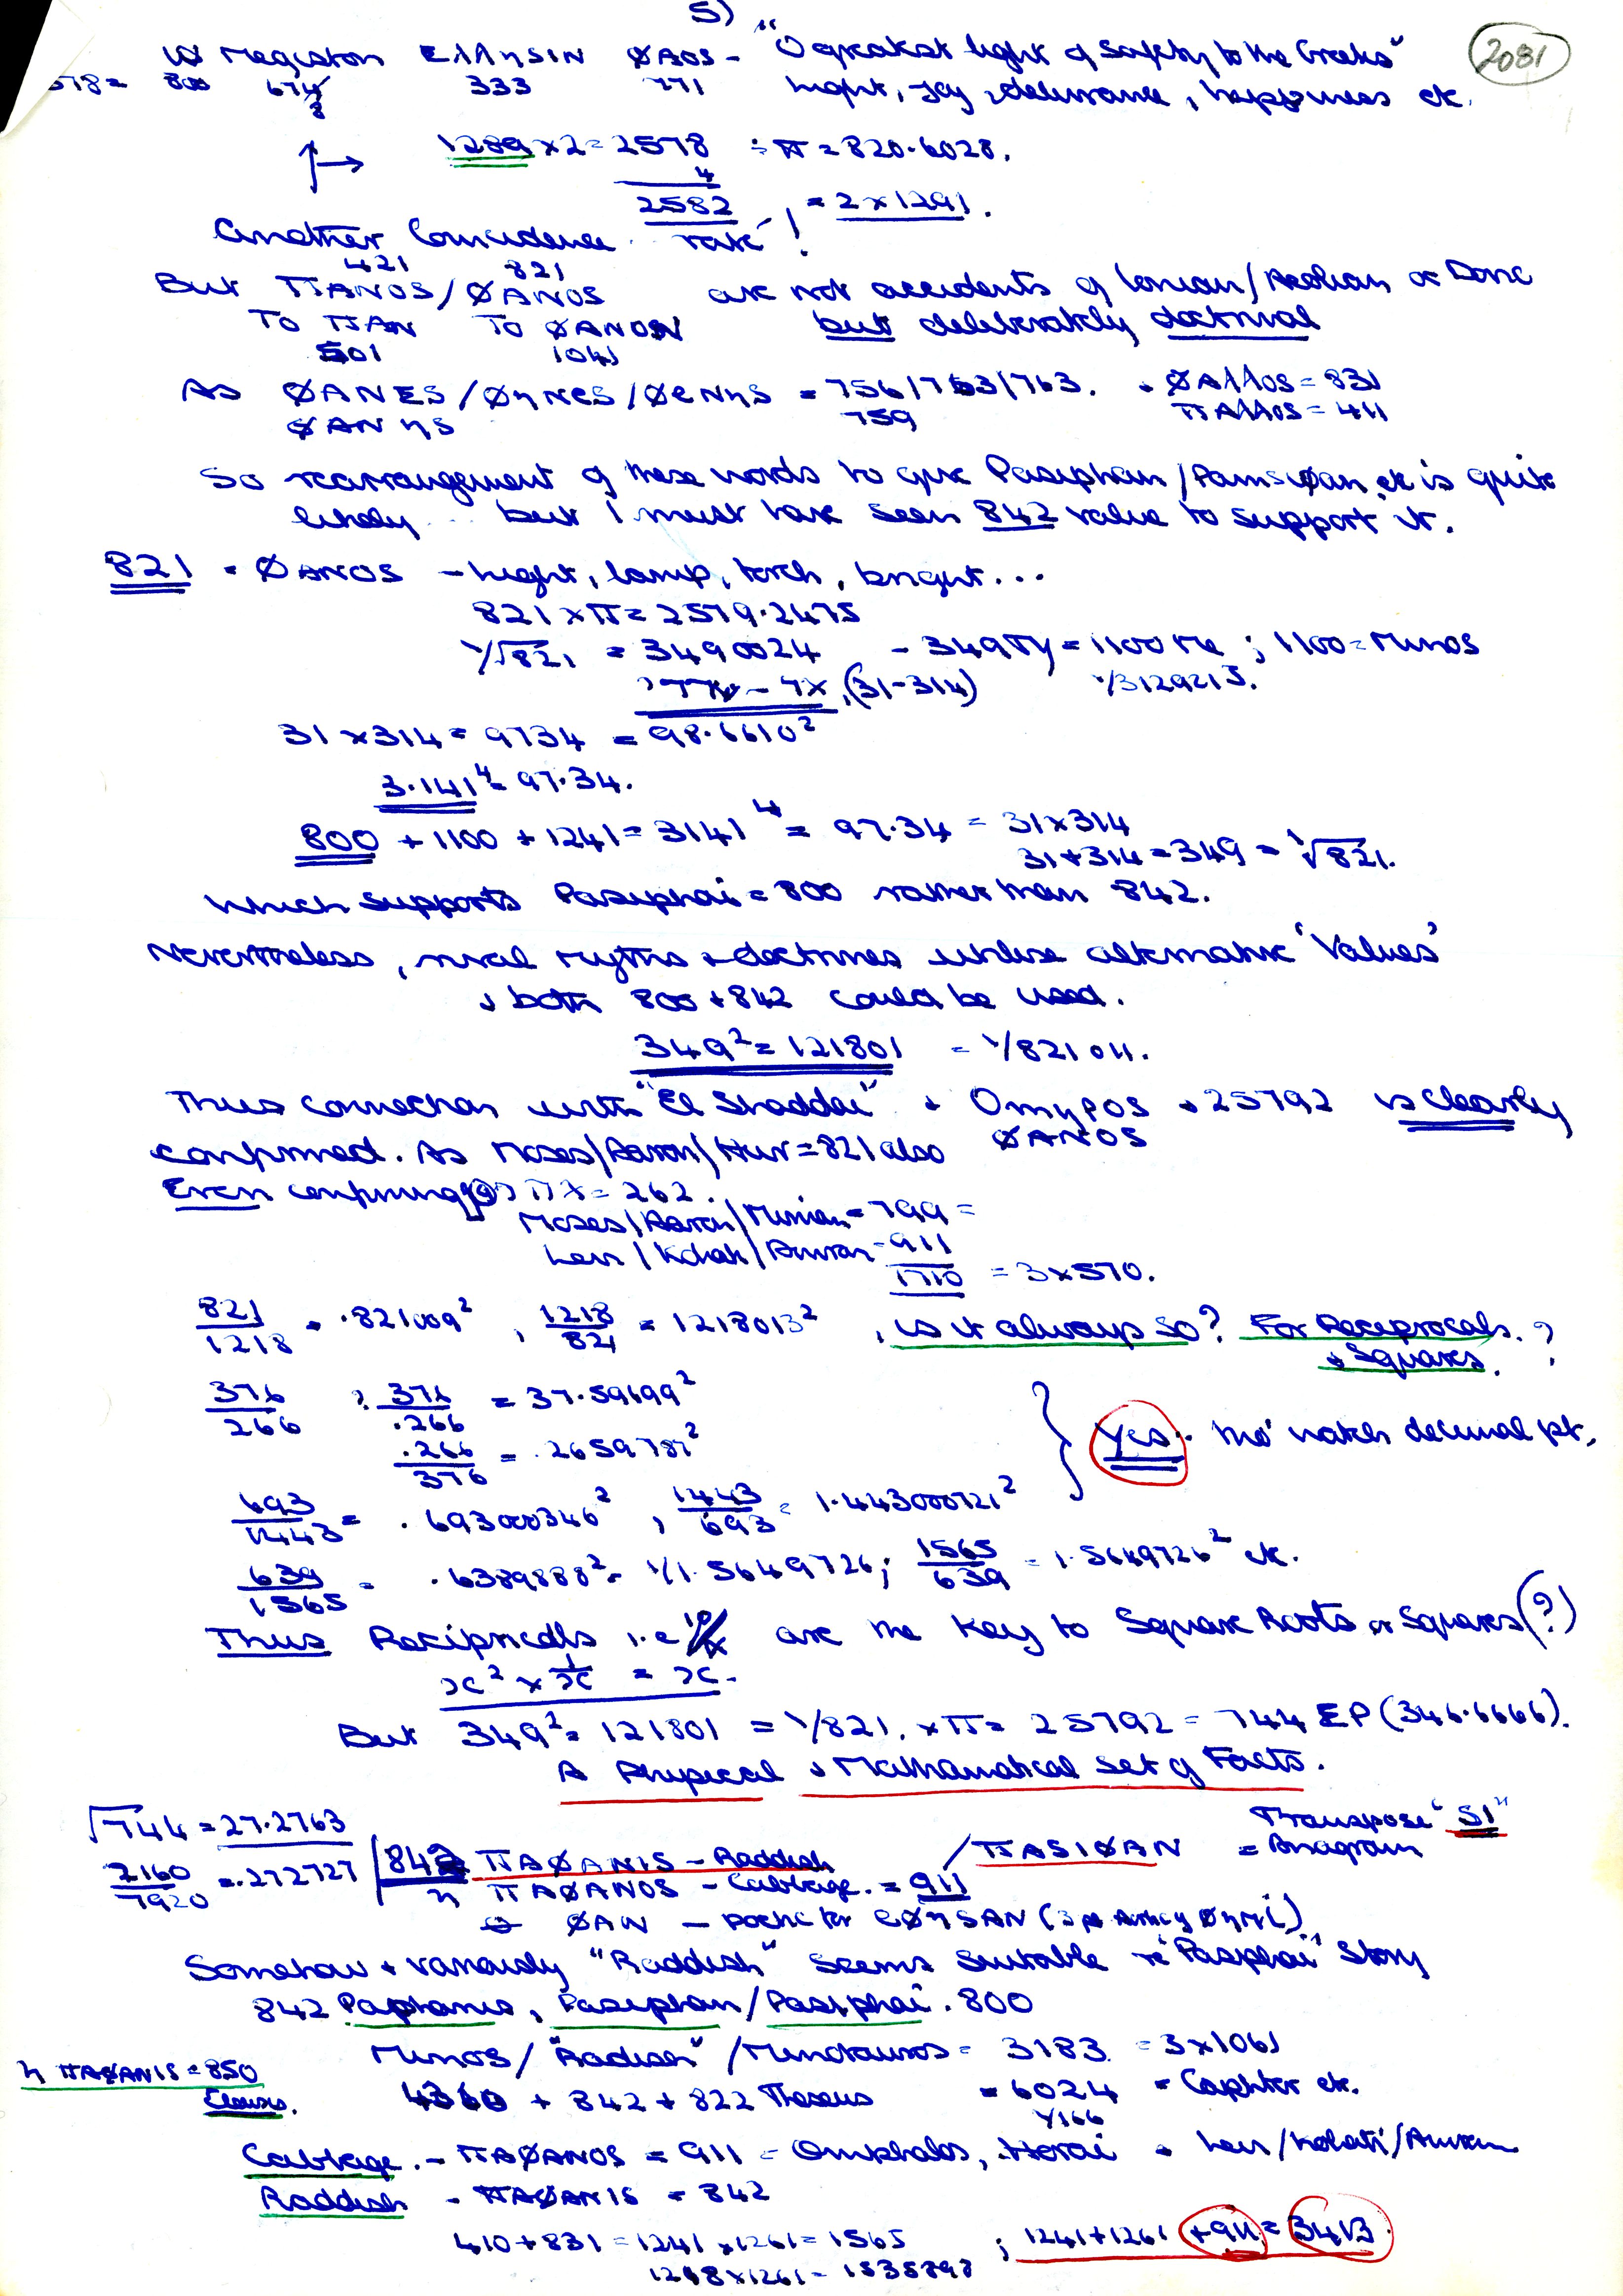 5)
2081
W Megiston EΛΛηSIN ØAOS - "O greatest light of safety to the Greeks"
578 = 800 674 333 771 Light, joy, deliverance, happiness etc.
3
1289 x 2 = 2578 ÷ π = 820.6028.
4
2582 = 2 x 1291.
Another Coincidence rate!
421 821
But ΠANOS/ØANOS are not accidents of Ionian/Aeolian or Doric
TO ΠAN TO ØANON but deliberately doctrinal
501 1041
As ØANES/ØηNES/ØENηS = 756/763/763. ØAΛΛOS = 831
ØANηS 759 ΠAΛΛOS = 411
So rearrangement of these words to give Pasiphan/ etc is quite
likely... but I must have seen 842 value to support it.
821 = ØANOS - Light, lamp, torch, bright...
821 x π = 2579.2475
1/√821 = 3490024 - 349 = 1100 ; 1100 = Minos
(31-314) 1/3129213.
31 x 314 = 9734 = 98.6610²
3.141⁴ = 97.34.
800 + 1100 + 1241 = 3141⁴ = 97.34 = 31 x 314
31 + 314 = 349 = 1/√821.
Which supports Pasiphai = 800 rather than 842.
Nevertheless, rival myths + doctrines utilise alternative 'Values'
+ both 800 + 842 could be used.
349² = 121801 = 1/821011.
Thus connection with "El Shaddai" + OmηPOS + 25792 is clearly
ØANOS
confirmed. As Moses/Aaron/Hur = 821 also
Even confirming = 262.
Moses/Aaron/Miriam = 799 =
Levi/Kohath/Amram = 911
1710 = 3 x 570.
821/1218 = .821009², 1218/821 = 1218013², is it always so? For Reciprocals.?
+ Squares.?
376/266 ? 376/.266 = 37.59699²
.266/376 = .2659787²
Yes.. tho' watch decimal pt.
693/1443 = .693000346², 1443/693 = 1.443000721²
639/1565 = .6389888² = 1/1.5649726; 1565/639 = 1.5649726² etc.
Thus Reciprocals i.e 1/x are the key to Square Roots or Squares (?)
x² x 1/x = x.
But 349² = 121801 = 1/821. x π = 25792 = 744 EP (346.6666).
A Physical + Mathematical Set of Facts.
√744 = 27.2763
Transpose "SI"
2160/7920 = .272727 842 ΠAØANIS - Raddish / ΠASIØAN = Anagram
η ΠAØANOS - Cabbage. = 911
ØAN - poetic for EØηSAN
Somehow + variously "Raddish" seems suitable re 'Pasiphai' Story
842 Paphanis, Pasiphan/Pasiphai. 800
Minos/"Radish"/Minotauros = 3183 = 3x1061
η ΠAØANIS = 850
4360 + 842 + 822 Theseus = 6024 = Caphtor etc.
1/166
Cabbage. - ΠAØANOS = 911 = Omphalos, Horai = Levi/Kohath/Amram
Raddish - ΠAØANIS = 842
410 + 831 = 1241 x 1261 = 1565 ; 1241 + 1261 + 911 = 3413.
1218 x 1261 = 1535898